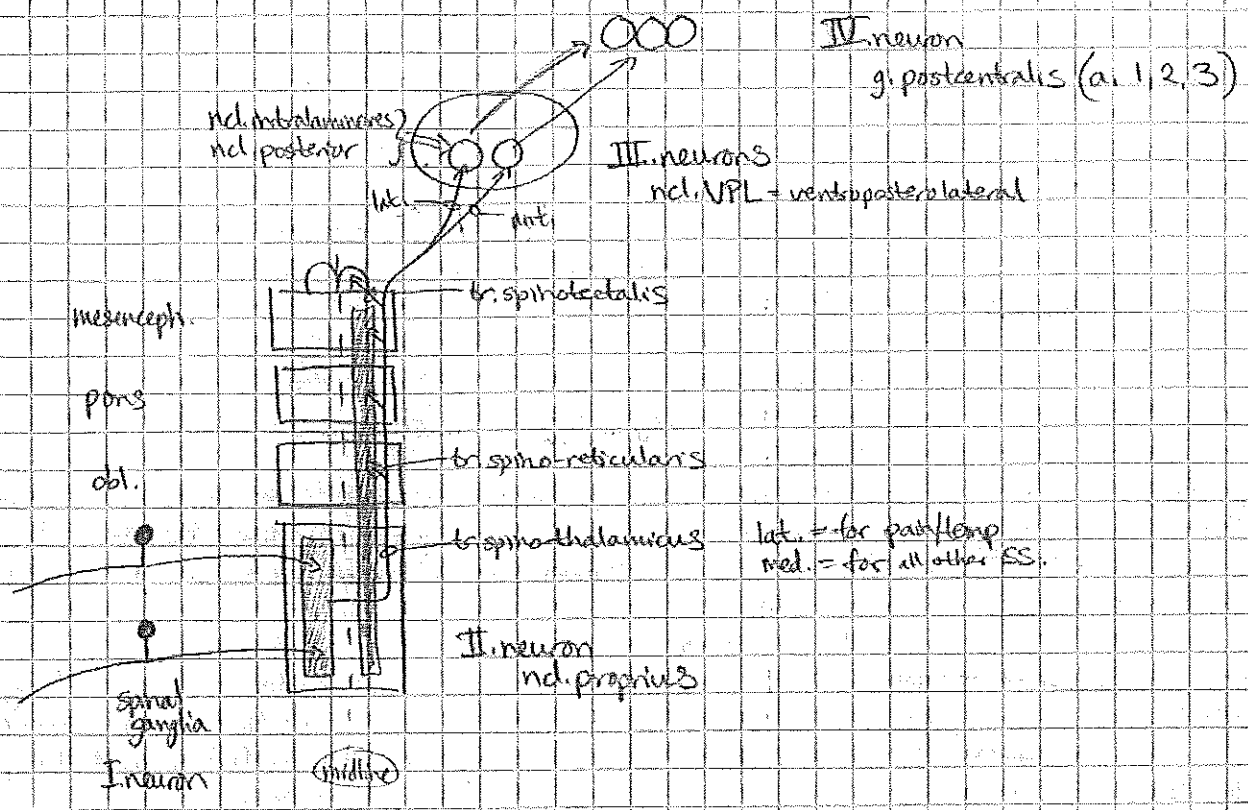 IV. neuron
g. postcentralis (a. 1, 2, 3)
ncl. intralaminares
ncl. posterior
III. neurons
ncl. VPL = ventroposterolateral
lat.
ant.
tr. spinotectalis
mesenceph.
pons
tr. spino-reticularis
obl.
tr. spino-thalamicus
lat. = for pain/temp
med. = for all other SS.
II. neuron
ncl. proprius
spinal
ganglia
I. neuron
midline